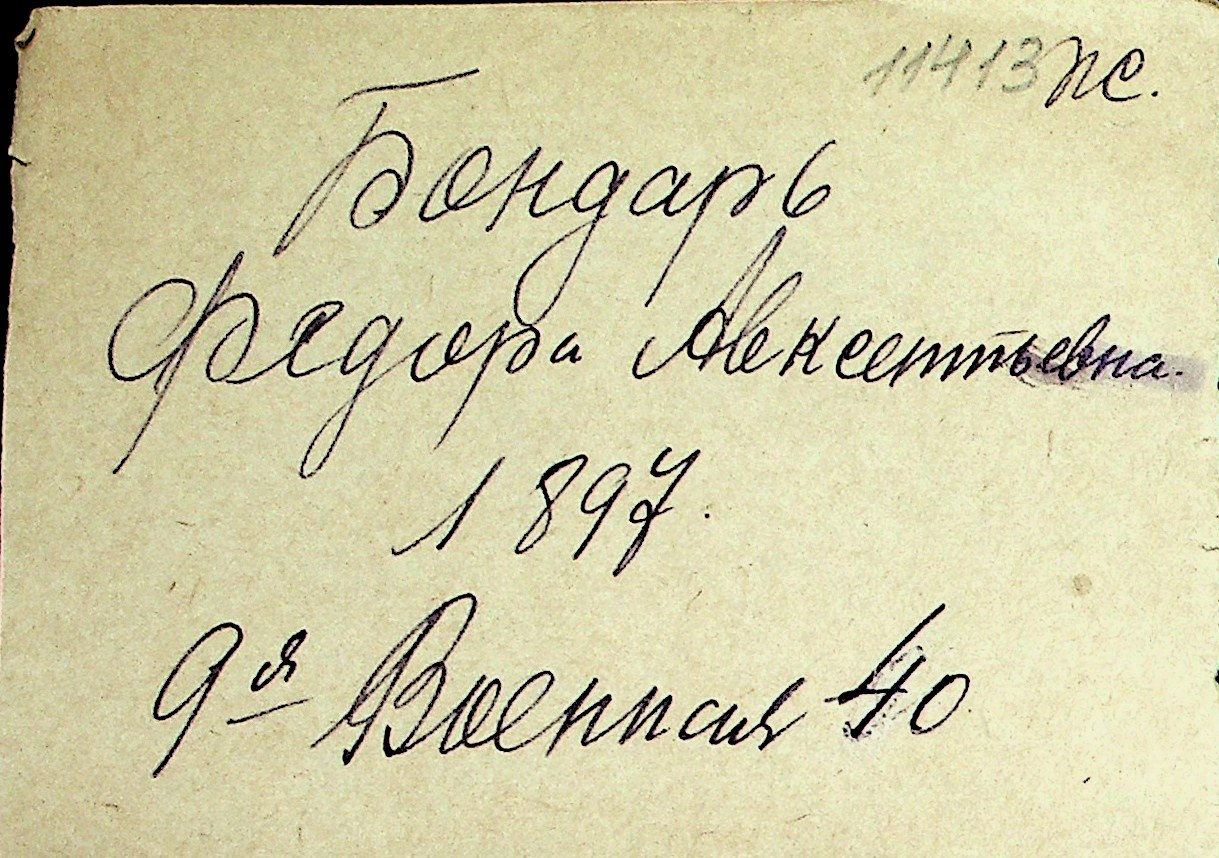 11413 пс.
Бондарь
Федора Авксентьевна.
1897.
9я Военная 40